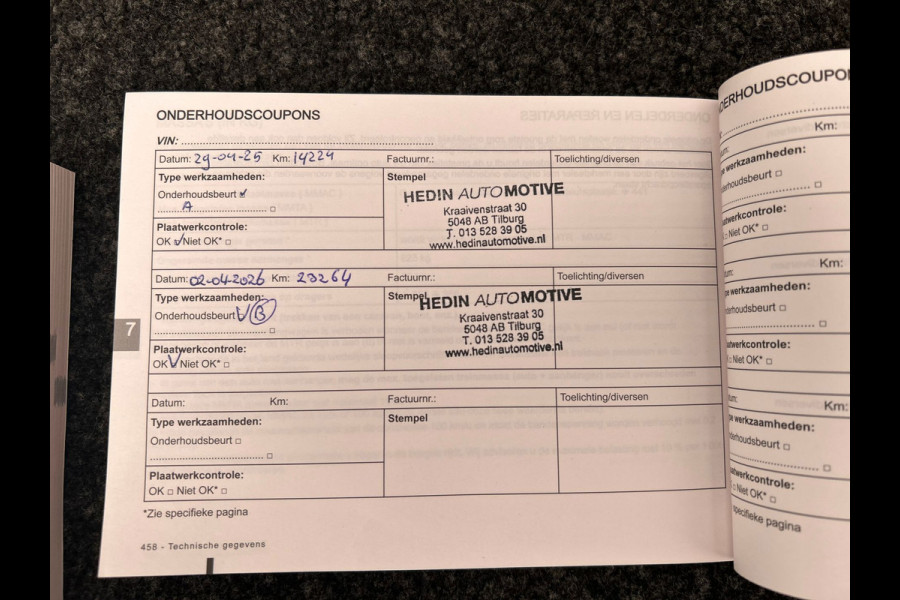 ONDERHOUDSCOUPONS
VIN: ........................................................................
Datum: 29-04-25 Km: 14224 Factuurnr.: Toelichting/diversen
Type werkzaamheden: Stempel
Onderhoudsbeurt ✓
A
HEDIN AUTOMOTIVE
Kraaivenstraat 30
5048 AB Tilburg
T. 013 528 39 05
www.hedinautomotive.nl
Plaatwerkcontrole:
OK ✓ Niet OK* □
Datum: 02-04-2026 Km: 23264 Factuurnr.: Toelichting/diversen
Type werkzaamheden: Stempel
Onderhoudsbeurt ✓ B
HEDIN AUTOMOTIVE
Kraaivenstraat 30
5048 AB Tilburg
T. 013 528 39 05
www.hedinautomotive.nl
Plaatwerkcontrole:
OK ✓ Niet OK* □
7
Datum: Km: Factuurnr.: Toelichting/diversen
Type werkzaamheden: Stempel
Onderhoudsbeurt □
Plaatwerkcontrole:
OK □ Niet OK* □
*Zie specifieke pagina
458 - Technische gegevens
Km:
Niet OK* □
Km:
Niet OK* □
Km:
Niet OK* □
specifieke pagina